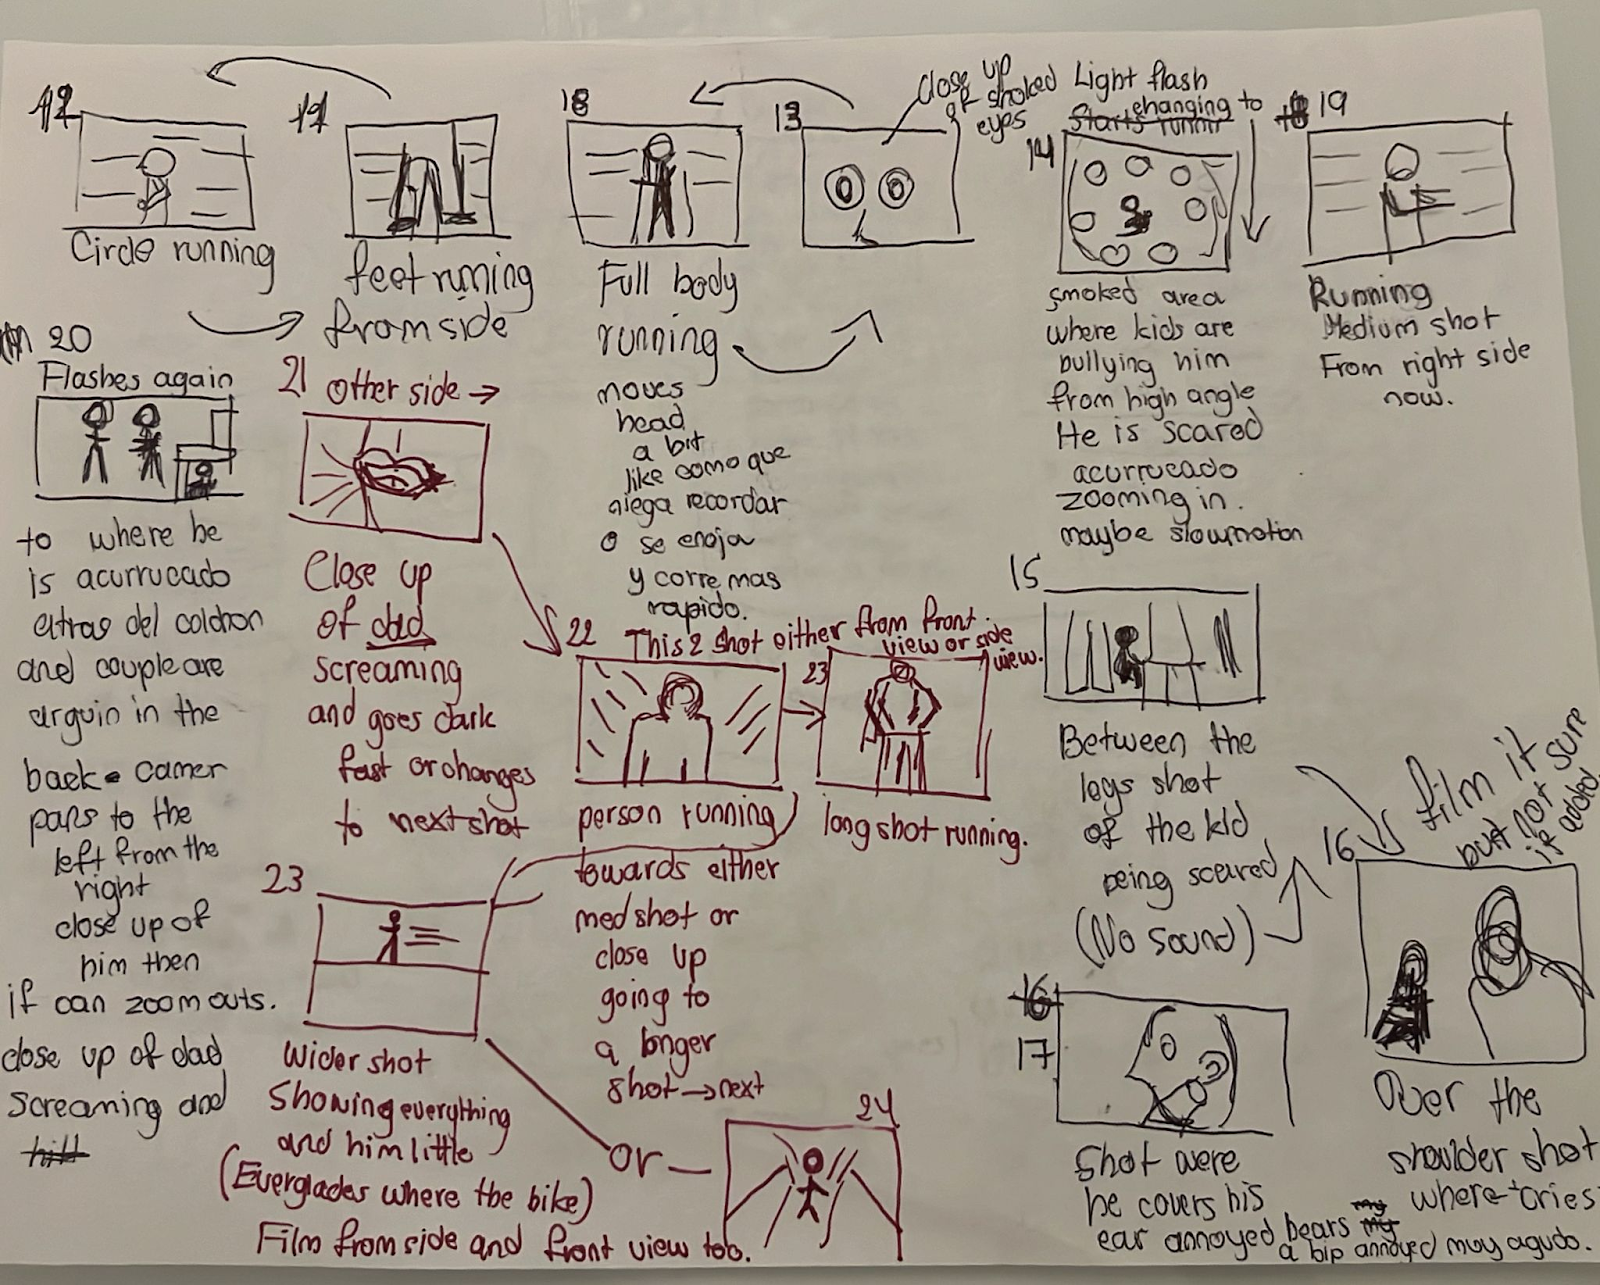 12
Circle running
11
feet runing
from side
18
Full body
running
moves
head
a bit
like como que
niega recordar
o se enoja
y corre mas
rapido.
13
close up
of shoked
eyes
Light flash
changing to
14
smoked area
where kids are
bullying him
from high angle
He is scared
acurrucado
zooming in.
maybe slowmotion
19
Running
Medium shot
From right side
now.
20
Flashes again
to where he
is acurrucado
atras del colchon
and couple are
arguin in the
back camer
pans to the
left from the
right
close up of
him then
if can zoom outs.
close up of dad
screaming and
21 Other side →
Close up
of dad
screaming
and goes dark
fast or changes
to next shot
22
This 2 shot either from front
view or side
view.
person running
towards either
med shot or
close up
going to
a longer
shot → next
23
long shot running.
15
Between the
legs shot
of the kid
being scared
(No sound)
16
film it sure
but not
if added
Over the
shoulder shot
where cries
16
17
Shot were
he covers his
ear annoyed hears
a bip annoyed muy agudo.
23
Wider shot
Showing everything
and him little
(Everglades where the bike)
Film from side and front view too.
or
24